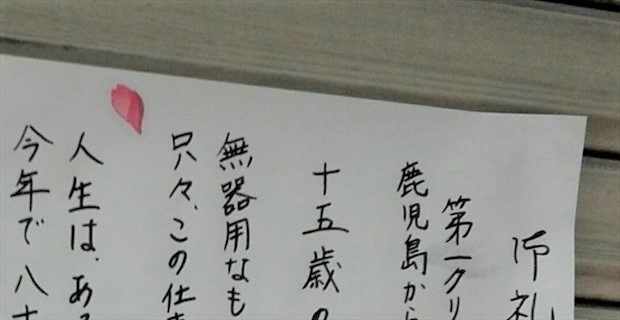 御礼
第一クリ
鹿児島から
十五歳の
無器用なも
只々、この仕
人生は、ある
今年で八十